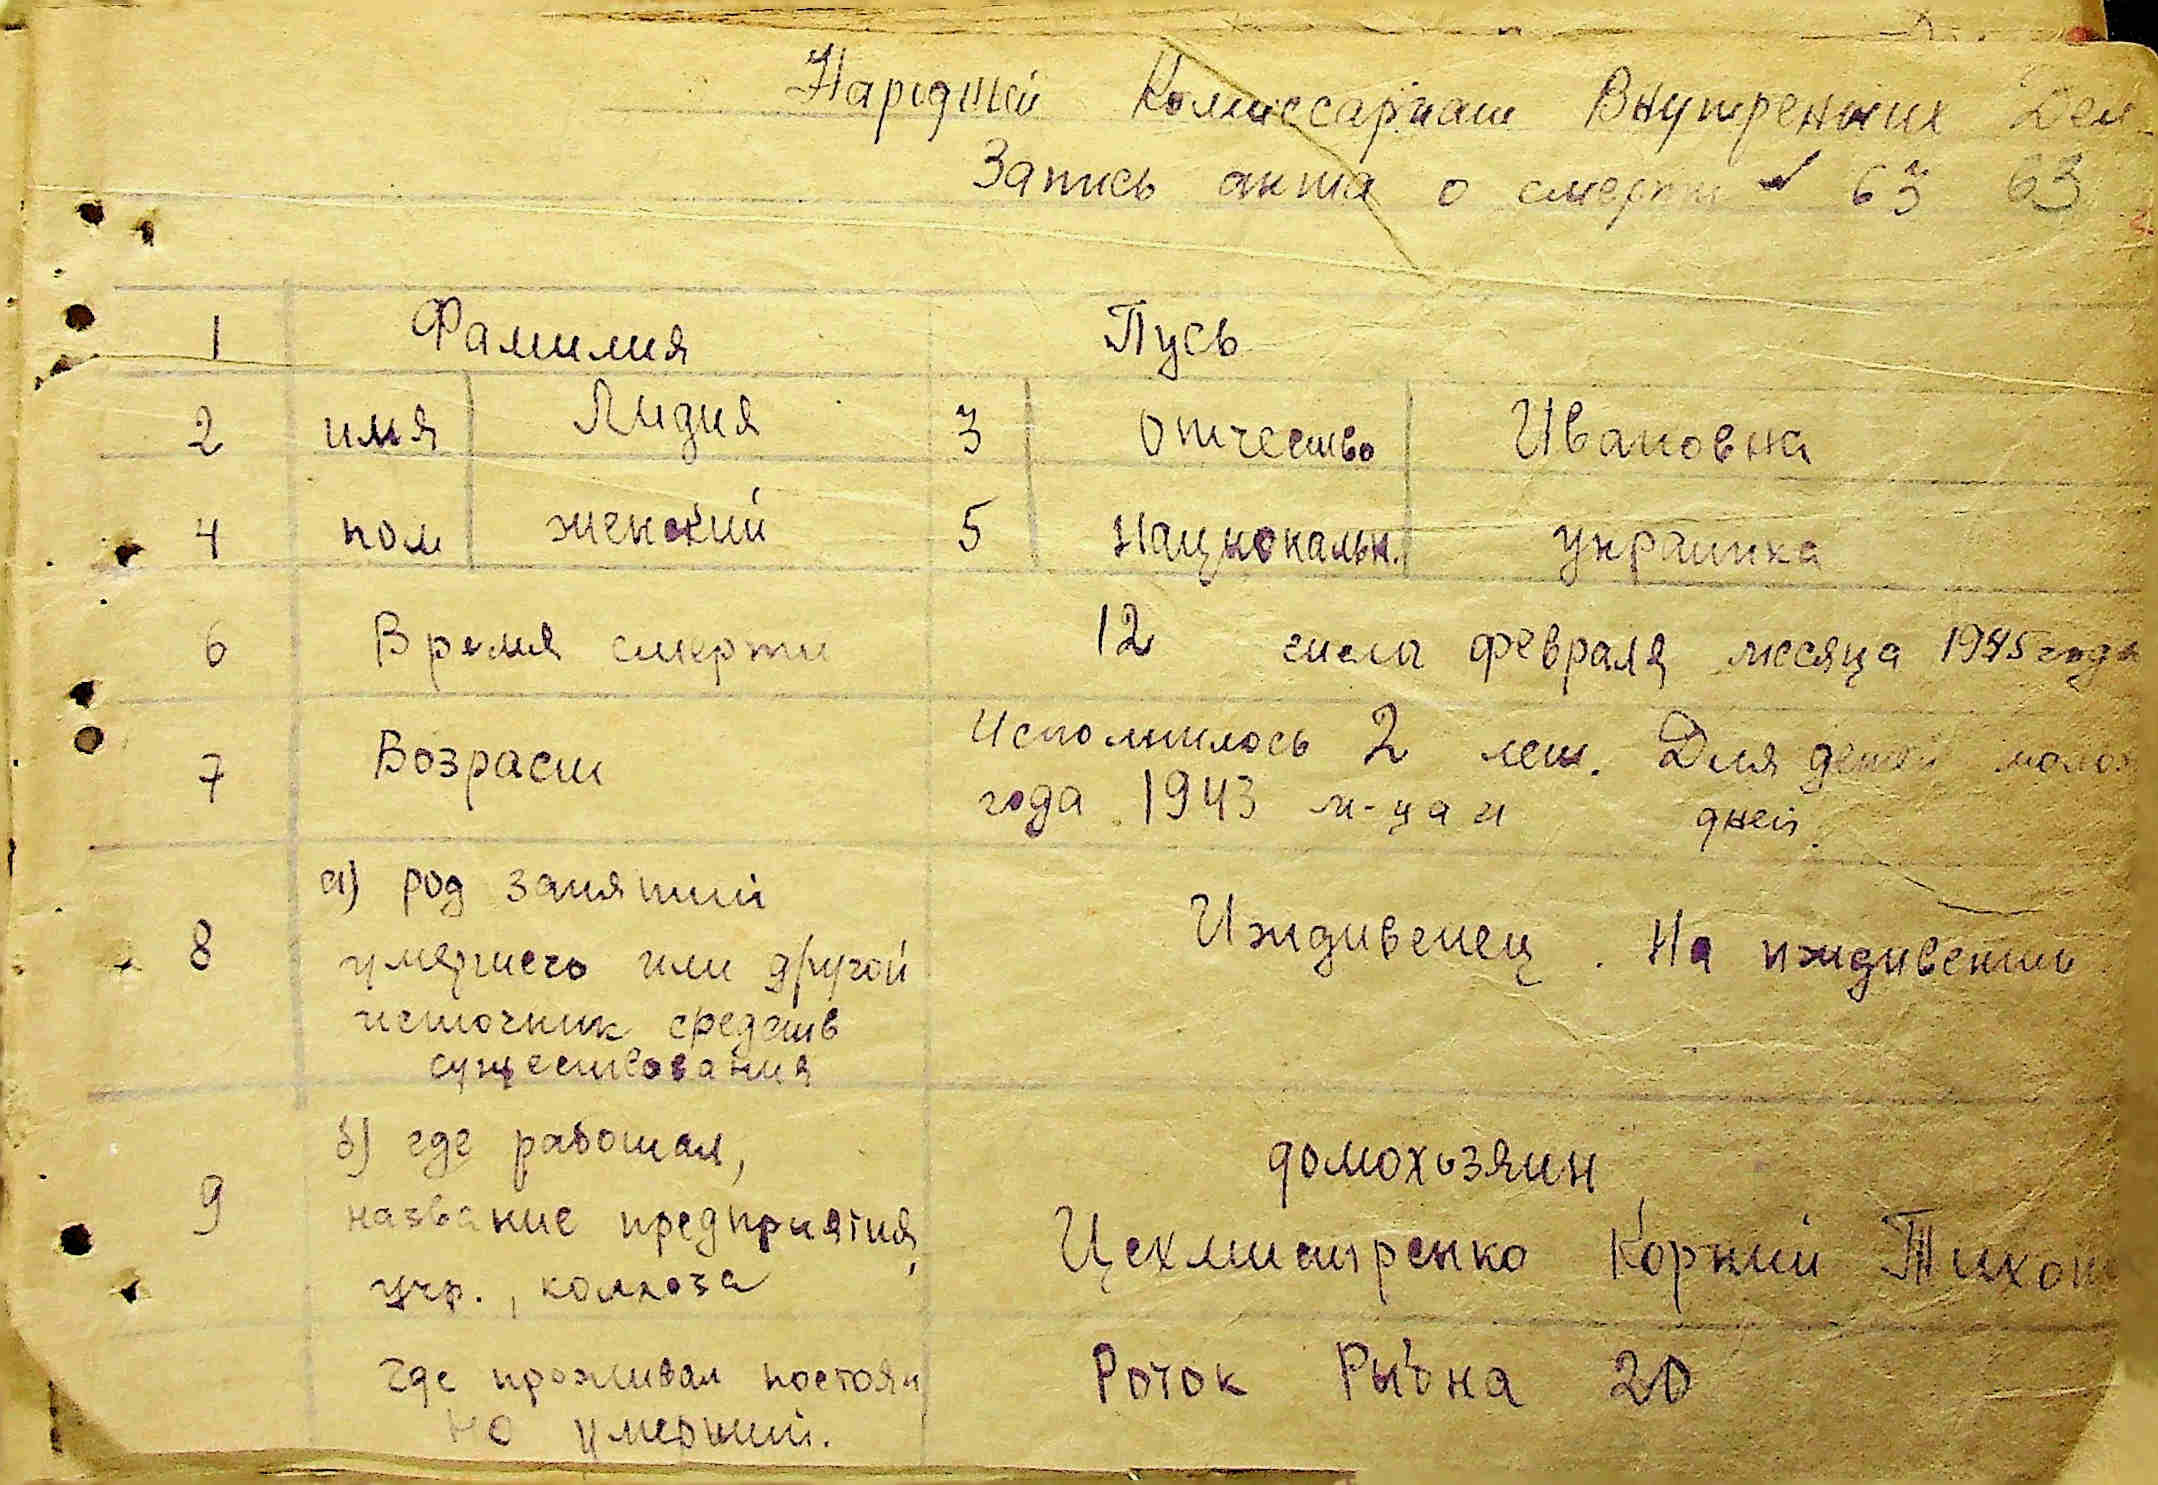 Народный Комиссариат Внутренних Дел
Запись акта о смерти 63 63
1 Фамилия Пусь
2 имя Лидия 3 Отчество Ивановна
4 пол женский 5 Национальн. украинка
6 Время смерти 12 числа февраля месяца 1945 года
7 Возраст Исполнилось 2 лет. Для детей молож
года 1943 м-ца и дней.
8 а) род занятий
умершего или другой Иждивенец. На иждивении
источник средств
существования
9 б) где работал, домохозяин
название предприятия, Цехмистренко Корний Тихон
учр., колхоза
где проживал постоян Роток Рыбна 20
но умерший.